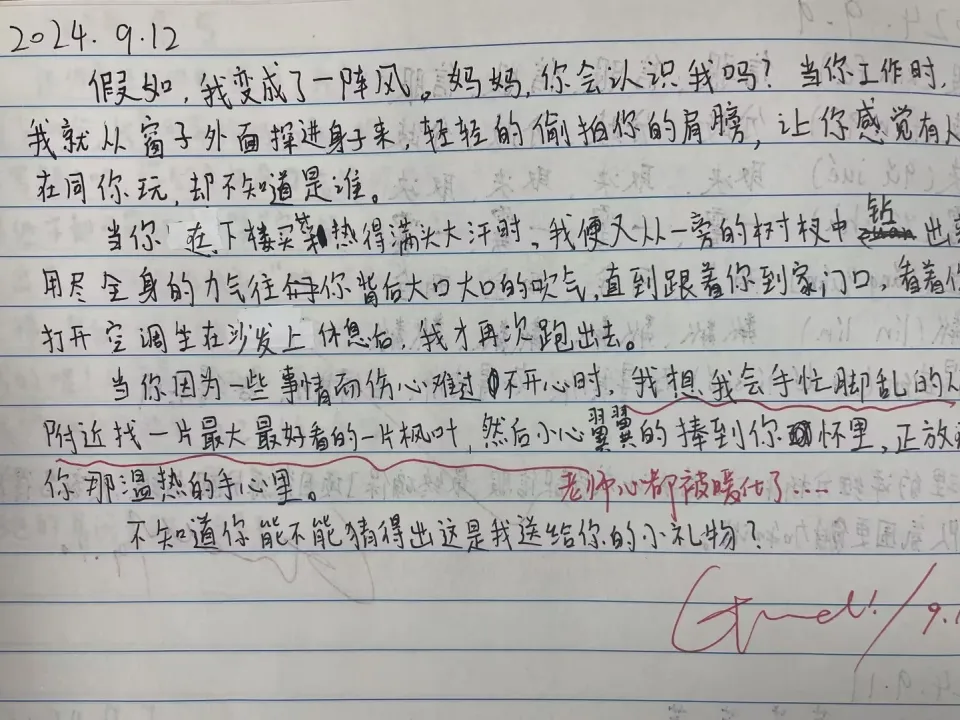 2024.9.12
假如,我变成了一阵风。妈妈,你会认识我吗?当你工作时,
我就从窗子外面探进身子来,轻轻的偷拍你的肩膀,让你感觉有人
在同你玩,却不知道是谁。
当你在下楼买菜热得满头大汗时,我便又从一旁的树杈中钻出来
用尽全身的力气往你背后大口大口的吹气,直到跟着你到家门口,看着你
打开空调坐在沙发上休息后,我才再次跑出去。
当你因为一些事情而伤心难过不开心时,我想我会手忙脚乱的从
附近找一片最大最好看的一片枫叶,然后小心翼翼的捧到你怀里,正放在
你那温热的手心里。
老师心都被暖化了....
不知道你能不能猜得出这是我送给你的小礼物?
Good!